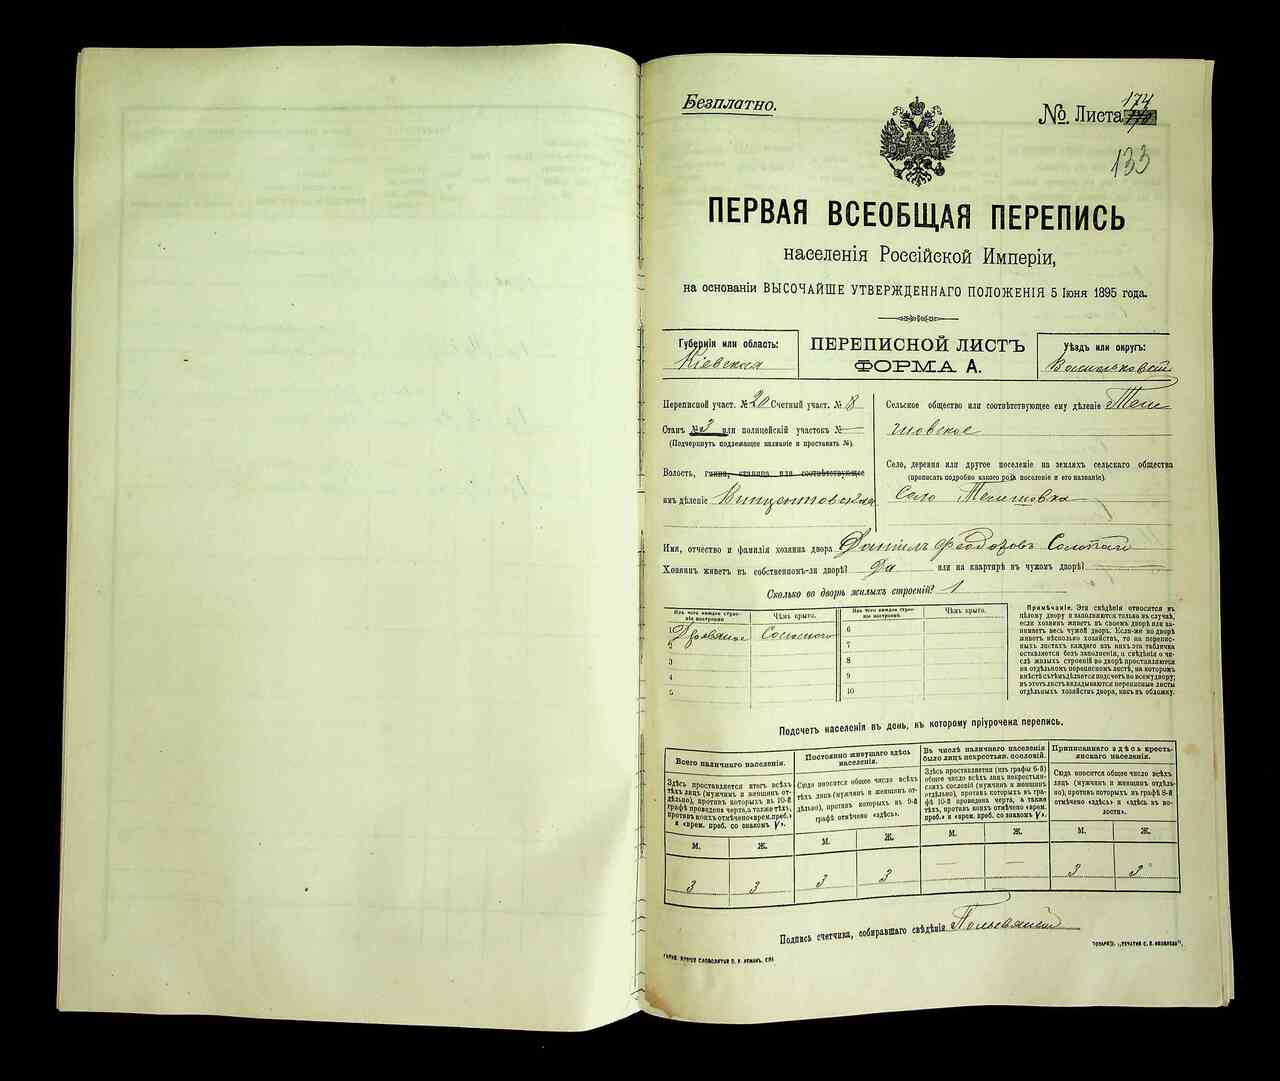 Безплатно.
№ Листа 174
133
ПЕРВАЯ ВСЕОБЩАЯ ПЕРЕПИСЬ
населенія Россійской Имперіи,
на основаніи ВЫСОЧАЙШЕ УТВЕРЖДЕННАГО ПОЛОЖЕНІЯ 5 Іюня 1895 года.
Губернія или область:
Кіевская
ПЕРЕПИСНОЙ ЛИСТЪ
ФОРМА А.
Уѣздъ или округъ:
Переписной участ. № 20 Счетный участ. № 8
Станъ № 3 или полицейскій участокъ № —
(Подчеркнуть подлежащее названіе и проставить №).
Волость, гмина, станица или соотвѣтствующее
имъ дѣленіе Винцентовская
Сельское общество или соотвѣтствующее ему дѣленіе Теле
шовское
Село, деревня или другое поселеніе на земляхъ сельскаго общества
(прописать подробно какого рода поселеніе и его названіе).
Село Телешовка
Имя, отчество и фамилія хозяина двора Даніилъ Феодоровъ
Хозяинъ живетъ въ собственномъ-ли дворѣ? Да или на квартирѣ въ чужомъ дворѣ? —
Сколько во дворѣ жилыхъ строеній? 1
Изъ чего каждое строе-
ніе построено
Чѣмъ крыто.
Изъ чего каждое строе-
ніе построено.
Чѣмъ крыто.
1 Деревяное Соломого 6
2 7
3 8
4 9
5 10
Примѣчаніе. Эти свѣдѣнія относятся къ
цѣлому двору и заполняются только въ случаѣ,
если хозяинъ живетъ въ своемъ дворѣ или за-
нимаетъ весь чужой дворъ. Если-же во дворѣ
живетъ нѣсколько хозяйствъ, то на перепис-
ныхъ листахъ каждаго изъ нихъ эта табличка
оставляется безъ заполненія, а свѣдѣнія о чи-
слѣ жилыхъ строеній во дворѣ проставляются
на отдѣльномъ переписномъ листѣ, на которомъ
вмѣстѣ съ тѣмъ дѣлается подсчетъ по всему двору;
въ этотъ листъ вкладываются переписные листы
отдѣльныхъ хозяйствъ двора, какъ въ обложку.
Подсчетъ населенія въ день, къ которому пріурочена перепись.
Всего наличнаго населенія.
Здѣсь проставляется итогъ всѣхъ
тѣхъ лицъ (мужчинъ и женщинъ от-
дѣльно), противъ которыхъ въ 10-й
графѣ проведена черта, а также тѣхъ,
противъ коихъ отмѣчено «врем. преб.»
и «врем. преб. со знакомъ V».
Постоянно живущаго здѣсь
населенія.
Сюда вносится общее число всѣхъ
тѣхъ лицъ (мужчинъ и женщинъ от-
дѣльно), противъ которыхъ въ 9-й
графѣ отмѣчено «здѣсь».
Въ числѣ наличнаго населенія
было лицъ некрестьян. сословій.
Здѣсь проставляется (изъ графы 6-й)
общее число всѣхъ лицъ некрестьян-
скихъ сословій (мужчинъ и женщинъ
отдѣльно), противъ которыхъ въ гра-
фѣ 10-й проведена черта, а также
тѣхъ, противъ коихъ отмѣчено «врем.
преб.» и «врем. преб. со знакомъ V».
Приписаннаго здѣсь кресть-
янскаго населенія.
Сюда вносится общее число всѣхъ
лицъ (мужчинъ и женщинъ отдѣль-
но), противъ которыхъ въ графѣ 8-й
отмѣчено «здѣсь» и «здѣсь въ во-
лости».
М. Ж. М. Ж. М. Ж. М. Ж.
3 3 3 3 — — 3 3
Подпись счетчика, собиравшаго свѣдѣнія